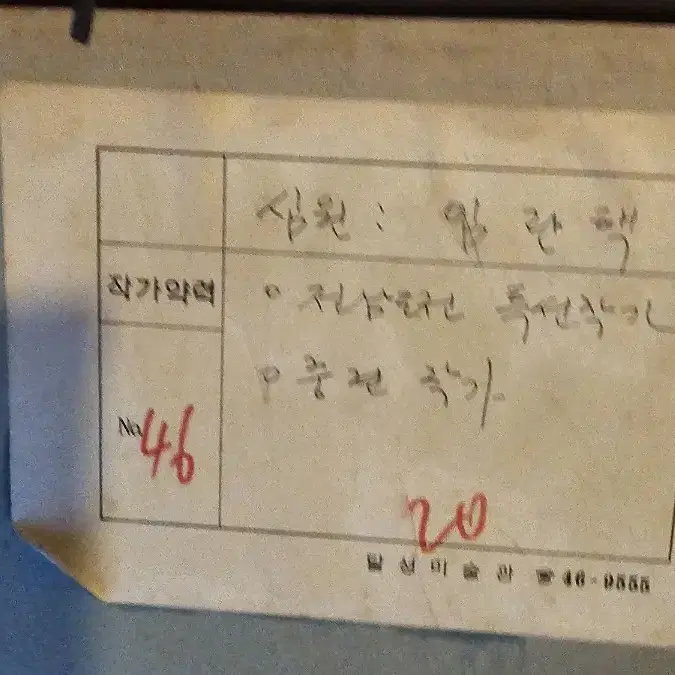 심원 : 임란택
작가약력
○ 전남도전 특선작가
○ 중견 작가
No. 46
20
미술관 ☎ 46-0555